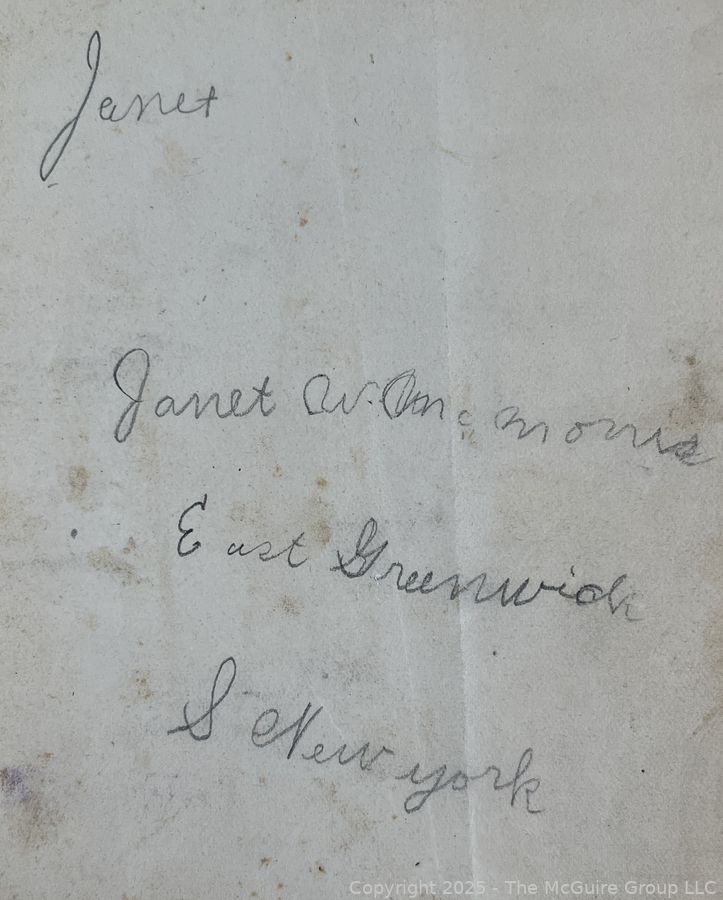 Janet
Janet W. Mc morris
East Greenwich
S New york
Copyright 2025 - The McGuire Group LLC